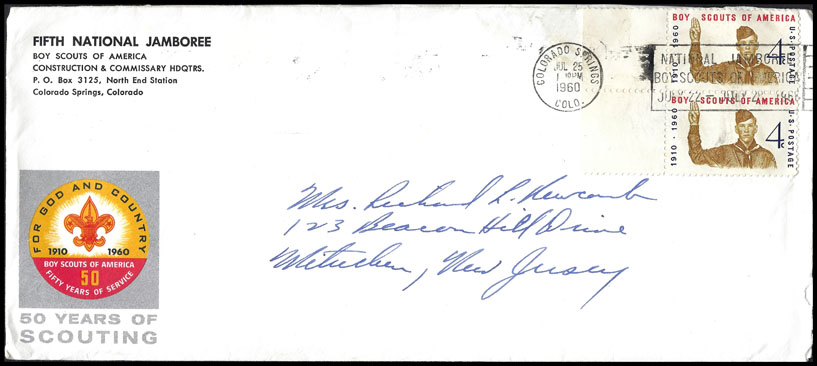 FIFTH NATIONAL JAMBOREE
BOY SCOUTS OF AMERICA
CONSTRUCTION & COMMISSARY HDQTRS.
P. O. Box 3125, North End Station
Colorado Springs, Colorado
COLORADO SPRINGS
JUL 25
PM
1960
COLO.
NATIONAL JAMBOREE
BOY SCOUTS OF AMERICA
JULY 22 - JULY 28 1960
BOY SCOUTS OF AMERICA
1910 - 1960
4c
U.S. POSTAGE
BOY SCOUTS OF AMERICA
1910 - 1960
4c
U.S. POSTAGE
Mrs. Richard L. Newcomb
123 Beacon Hill Drive
Metuchen, New Jersey
FOR GOD AND COUNTRY
1910 1960
BOY SCOUTS OF AMERICA
50
FIFTY YEARS OF SERVICE
50 YEARS OF
SCOUTING